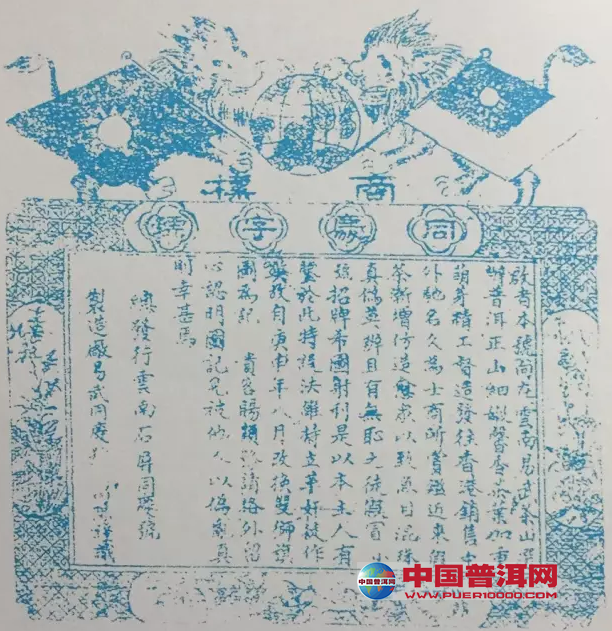 商標
同慶字號
啟者本號向在雲南易武茶山選
辦普洱正山細嫩馨香茶葉加重
萌芽精工督造發往香港銷售中
外馳名久為士商所賞鑑近東假
茶漸增仿造愈眾以致魚目混珠
真偽莫辨目有無恥之徒冒
招牌希圖射利是以本主人有
鑒於此特設法維持立革奸徒作
茲自庚申年八月改換雙獅旗
圖為記 貴客賜顧務請格外留
心認明圖記免被他人以偽亂真
則幸甚焉
總發行雲南石屏同慶號
製造廠易武同慶號
中国普洱网
WWW.PUER10000.COM